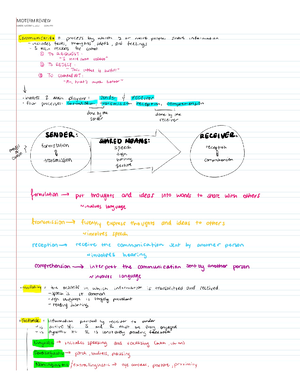 MIDTERM REVIEW
Communication = process by which 2 or more people share information
- includes facts, thoughts, ideas, and feelings
- 3 main reasons for comm
① TO REQUEST:
"I want more water"
② TO REJECT:
"This water is warm"
③ TO COMMENT:
needs 2 main players: sender & receiver
four processes: formulation, transmission, reception, comprehension
done by the sender
done by the receiver
SENDER:
formulation
transmission
SHARED MEANS:
speech
sign
writing
gesture
RECEIVER:
reception
comprehension
formulation → put thoughts and ideas into words to share with others
*involves language
transmission → fluently express thoughts and ideas to others
*involves speech
reception → receive the communication sent by another person
*involves hearing
comprehension → interpret the communication sent by another person
*involves language
modality = the manner in which information is transmitted and received
- speech is
reading listening
Feedback = information provided by receiver to sender
Linguistic = includes speaking and
Paralinguistic = pitch, loudness, pausing
eye contact, posture, proximity